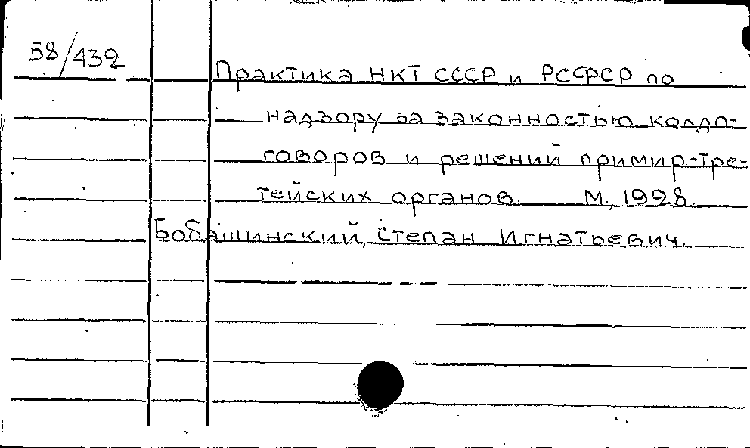 58/432
Практика НКТ СССР и РСФСР по
надзору за законностью колдо-
говоров и решений примир-тре-
тейских органов М, 1928
Бобашинский, Степан Игнатьевич.